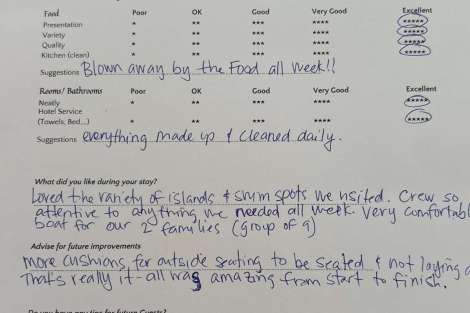 Food Poor OK Good Very Good Excellent
Presentation * ** *** **** *****
Variety * ** *** **** *****
Quality * ** *** **** *****
Kitchen (clean) * ** *** **** *****
Suggestions Blown away by the Food all week!!
Rooms/ Bathrooms Poor OK Good Very Good Excellent
Neatly * ** *** **** *****
Hotel Service
(Towels, Bed...) * ** *** **** *****
Suggestions everything made up & cleaned daily.
What did you like during your stay?
Loved the variety of islands & swim spots we visited. Crew so
attentive to anything we needed all week. Very comfortabl
boat for our 2 families (group of 9)
Advise for future improvements
more cushions for outside seating to be seated & not laying
That's really it - all was amazing from start to finish.